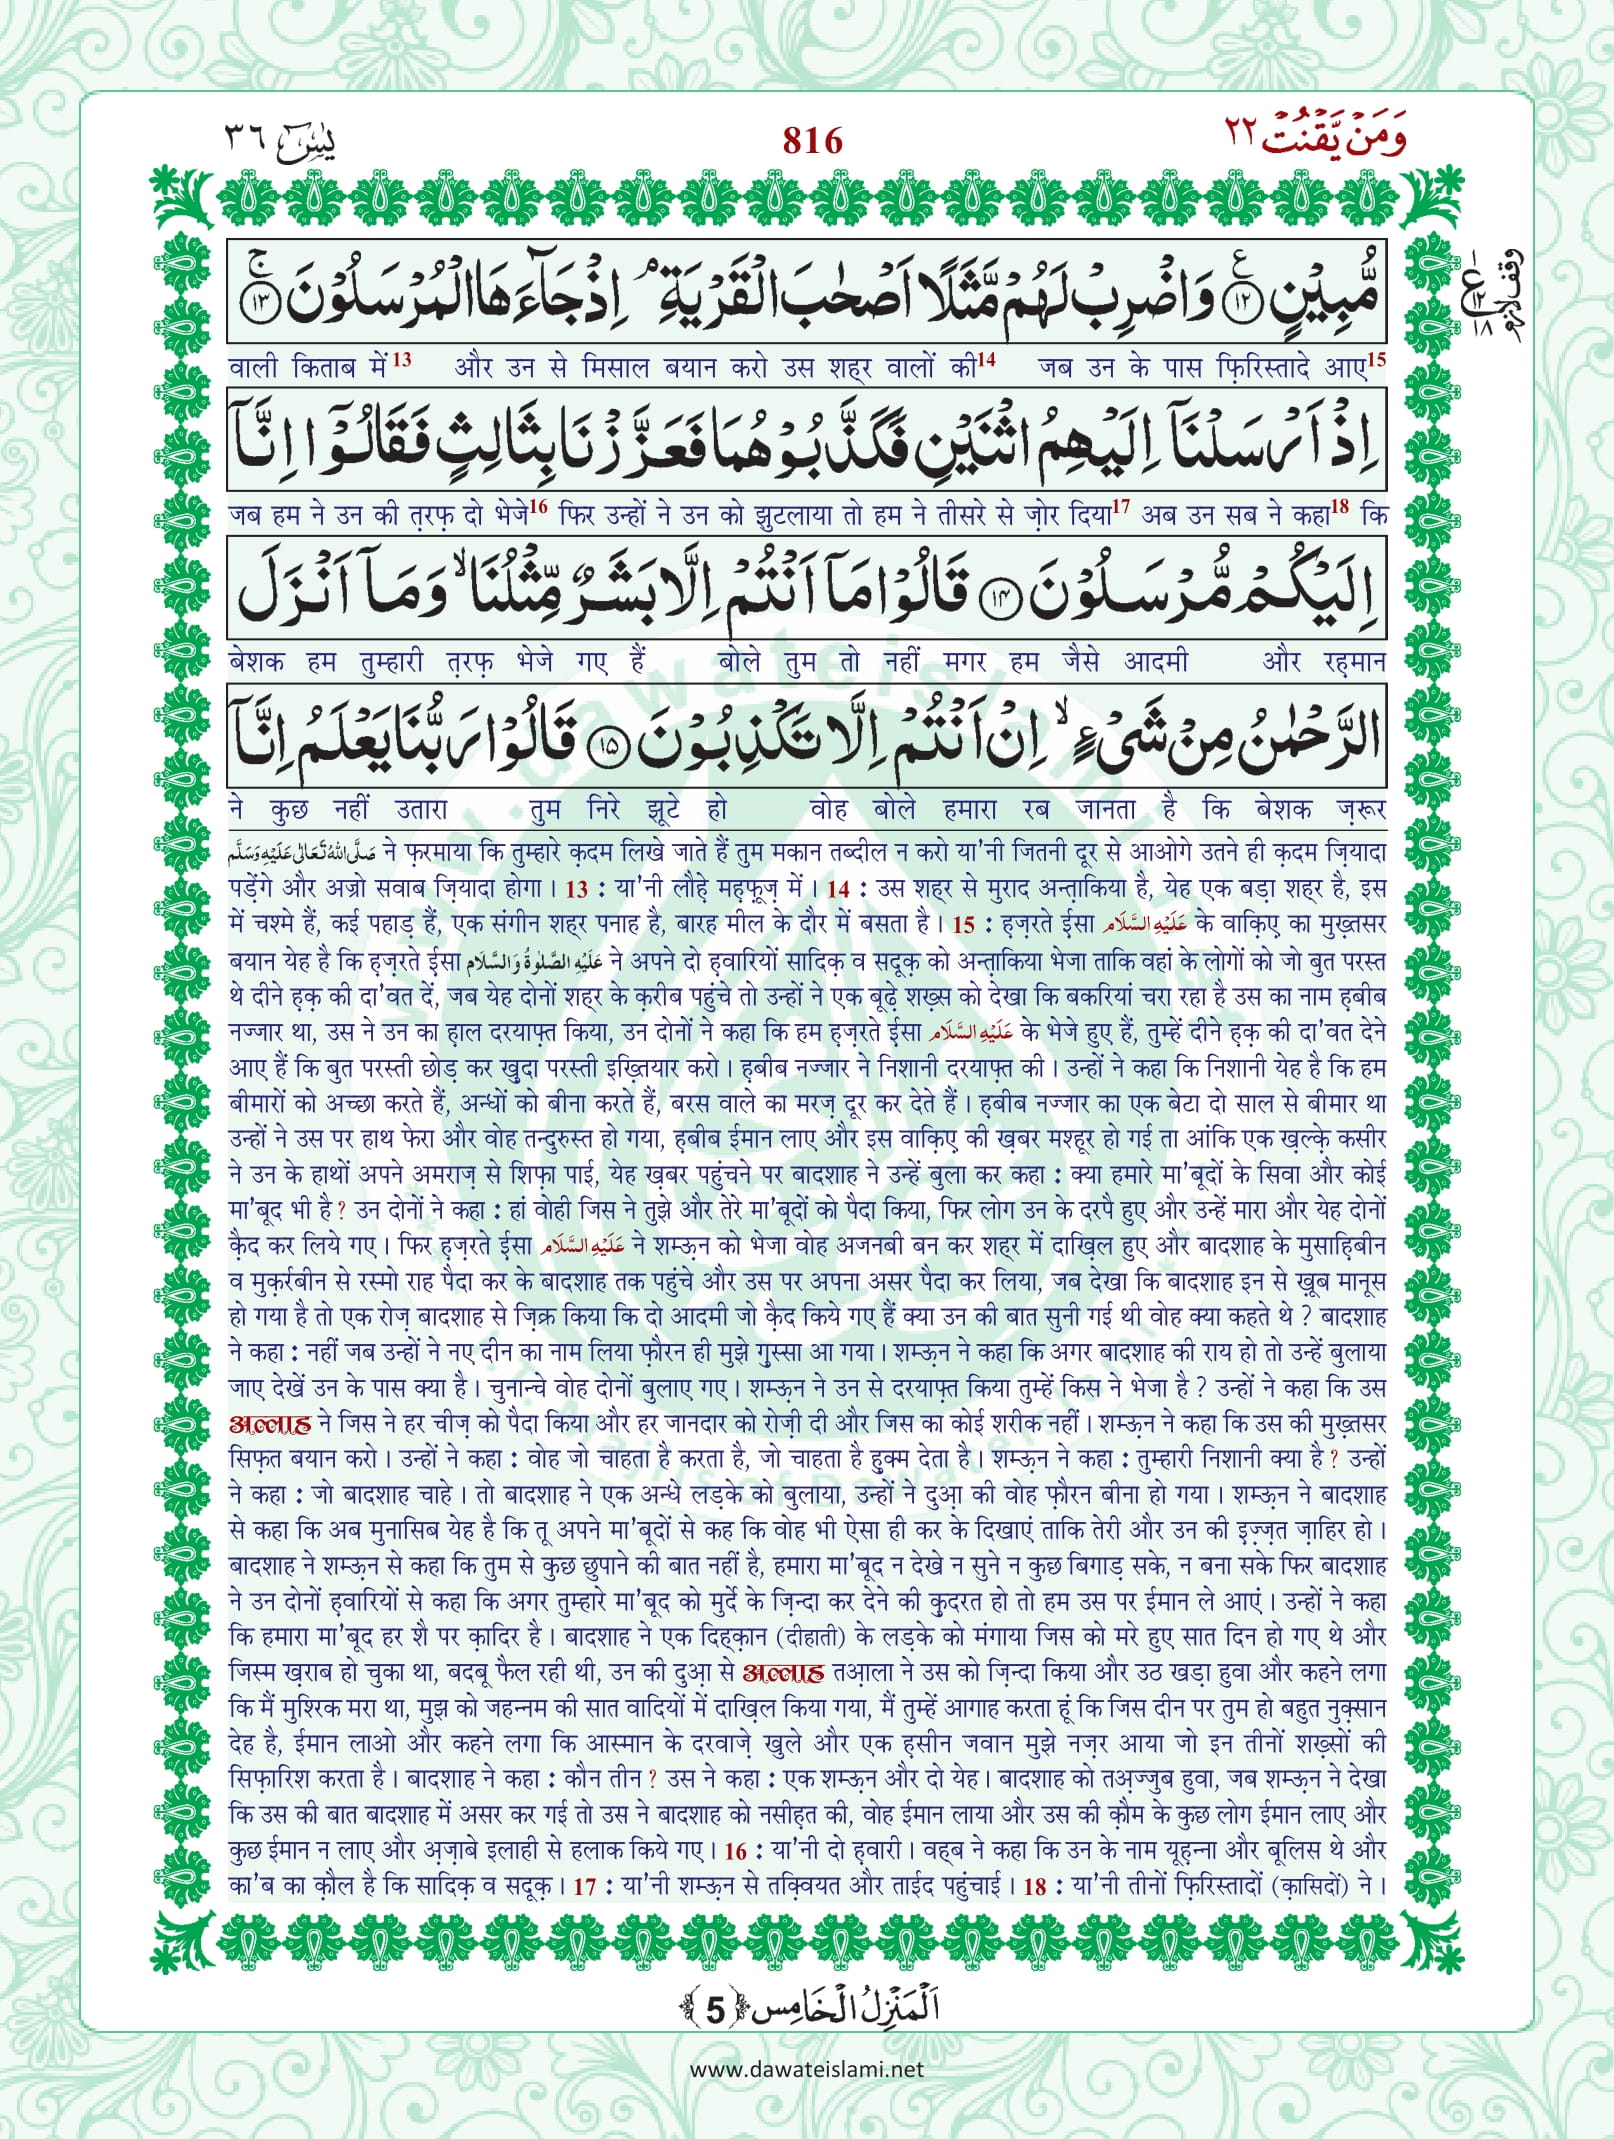 وَمَنۡ يَّقۡنُت ٢٢
816
يٰسٓ ٣٦
مُّبِیۡنٍ ﴿۱۲﴾ وَاضْرِبْ لَهُمْ مَّثَلًا اَصْحٰبَ الْقَرْیَةِ ۘ اِذْ جَآءَهَا الْمُرْسَلُوْنَ ﴿۱۳﴾
वाली किताब में13 और उन से मिसाल बयान करो उस शह्र वालों की14 जब उन के पास फ़िरिस्तादे आए15
اِذْ اَرْسَلْنَاۤ اِلَیْهِمُ اثْنَیْنِ فَكَذَّبُوْهُمَا فَعَزَّزْنَا بِثَالِثٍ فَقَالُوْۤا اِنَّاۤ
जब हम ने उन की त़रफ़ दो भेजे16 फिर उन्हों ने उन को झुटलाया तो हम ने तीसरे से ज़ोर दिया17 अब उन सब ने कहा18 कि
اِلَیْكُمْ مُّرْسَلُوْنَ ﴿۱۴﴾ قَالُوْا مَاۤ اَنْتُمْ اِلَّا بَشَرٌ مِّثْلُنَا ۙ وَمَاۤ اَنْزَلَ
बेशक हम तुम्हारी त़रफ़ भेजे गए हैं बोले तुम तो नहीं मगर हम जैसे आदमी और रह़मान
الرَّحْمٰنُ مِنْ شَیْءٍ ۙ اِنْ اَنْتُمْ اِلَّا تَكْذِبُوْنَ ﴿۱۵﴾ قَالُوْا رَبُّنَا یَعْلَمُ اِنَّاۤ
ने कुछ नहीं उतारा तुम निरे झूटे हो वोह बोले हमारा रब जानता है कि बेशक ज़रूर
صَلَّی اللّٰہُ تَعَالٰی عَلَیْہِ وَسَلَّم ने फ़रमाया कि तुम्हारे क़दम लिखे जाते हैं तुम मकान तब्दील न करो या'नी जितनी दूर से आओगे उतने ही क़दम ज़ियादा
पड़ेंगे और अज्रो सवाब ज़ियादा होगा। 13 : या'नी लौह़े मह़फ़ूज़ में। 14 : उस शह्र से मुराद अन्त़ाकिया है, येह एक बड़ा शह्र है, इस
में चश्मे हैं, कई पहाड़ हैं, एक संगीन शह्र पनाह है, बारह मील के दौर में बसता है। 15 : ह़ज़रते ईसा عَلَیْہِ السَّلَام के वाक़िए का मुख़्तसर
बयान येह है कि ह़ज़रते ईसा عَلَیْہِ الصَّلٰوۃُ وَالسَّلَام ने अपने दो ह़वारियों सादिक़ व सदूक़ को अन्त़ाकिया भेजा ताकि वहां के लोगों को जो बुत परस्त
थे दीने ह़क़ की दा'वत दें, जब येह दोनों शह्र के क़रीब पहुंचे तो उन्हों ने एक बूढ़े शख़्स को देखा कि बकरियां चरा रहा है उस का नाम ह़बीब
नज्जार था, उस ने उन का ह़ाल दरयाफ़्त किया, उन दोनों ने कहा कि हम ह़ज़रते ईसा عَلَیْہِ السَّلَام के भेजे हुए हैं, तुम्हें दीने ह़क़ की दा'वत देने
आए हैं कि बुत परस्ती छोड़ कर ख़ुदा परस्ती इख़्तियार करो। ह़बीब नज्जार ने निशानी दरयाफ़्त की। उन्हों ने कहा कि निशानी येह है कि हम
बीमारों को अच्छा करते हैं, अन्धों को बीना करते हैं, बरस वाले का मरज़ दूर कर देते हैं। ह़बीब नज्जार का एक बेटा दो साल से बीमार था
उन्हों ने उस पर हाथ फेरा और वोह तन्दुरुस्त हो गया, ह़बीब ईमान लाए और इस वाक़िए की ख़बर मश्हूर हो गई ता आंकि एक ख़ल्क़े कसीर
ने उन के हाथों अपने अमराज़ से शिफ़ा पाई, येह ख़बर पहुंचने पर बादशाह ने उन्हें बुला कर कहा : क्या हमारे मा'बूदों के सिवा और कोई
मा'बूद भी है? उन दोनों ने कहा : हां वोही जिस ने तुझे और तेरे मा'बूदों को पैदा किया, फिर लोग उन के दरपै हुए और उन्हें मारा और येह दोनों
क़ैद कर लिये गए। फिर ह़ज़रते ईसा عَلَیْہِ السَّلَام ने शम्ऊ़न को भेजा वोह अजनबी बन कर शह्र में दाख़िल हुए और बादशाह के मुसाह़िबीन
व मुक़र्रबीन से रस्मो राह पैदा कर के बादशाह तक पहुंचे और उस पर अपना असर पैदा कर लिया, जब देखा कि बादशाह इन से ख़ूब मानूस
हो गया है तो एक रोज़ बादशाह से ज़िक्र किया कि दो आदमी जो क़ैद किये गए हैं क्या उन की बात सुनी गई थी वोह क्या कहते थे ? बादशाह
ने कहा : नहीं जब उन्हों ने नए दीन का नाम लिया फ़ौरन ही मुझे ग़ुस्सा आ गया। शम्ऊ़न ने कहा कि अगर बादशाह की राय हो तो उन्हें बुलाया
जाए देखें उन के पास क्या है। चुनान्चे वोह दोनों बुलाए गए। शम्ऊ़न ने उन से दरयाफ़्त किया तुम्हें किस ने भेजा है ? उन्हों ने कहा कि उस
अल्लाह ने जिस ने हर चीज़ को पैदा किया और हर जानदार को रोज़ी दी और जिस का कोई शरीक नहीं। शम्ऊ़न ने कहा कि उस की मुख़्तसर
सिफ़त बयान करो। उन्हों ने कहा : वोह जो चाहता है करता है, जो चाहता है हुक्म देता है। शम्ऊ़न ने कहा : तुम्हारी निशानी क्या है? उन्हों
ने कहा : जो बादशाह चाहे। तो बादशाह ने एक अन्धे लड़के को बुलाया, उन्हों ने दुआ़ की वोह फ़ौरन बीना हो गया। शम्ऊ़न ने बादशाह
से कहा कि अब मुनासिब येह है कि तू अपने मा'बूदों से कह कि वोह भी ऐसा ही कर के दिखाएं ताकि तेरी और उन की इ़ज़्ज़त ज़ाहिर हो।
बादशाह ने शम्ऊ़न से कहा कि तुम से कुछ छुपाने की बात नहीं है, हमारा मा'बूद न देखे न सुने न कुछ बिगाड़ सके, न बना सके फिर बादशाह
ने उन दोनों ह़वारियों से कहा कि अगर तुम्हारे मा'बूद को मुर्दे के ज़िन्दा कर देने की क़ुदरत हो तो हम उस पर ईमान ले आएं। उन्हों ने कहा
कि हमारा मा'बूद हर शै पर क़ादिर है। बादशाह ने एक दिह्क़ान (दीहाती) के लड़के को मंगाया जिस को मरे हुए सात दिन हो गए थे और
जिस्म ख़राब हो चुका था, बदबू फैल रही थी, उन की दुआ़ से अल्लाह तआ़ला ने उस को ज़िन्दा किया और उठ खड़ा हुवा और कहने लगा
कि मैं मुश्रिक मरा था, मुझ को जहन्नम की सात वादियों में दाख़िल किया गया, मैं तुम्हें आगाह करता हूं कि जिस दीन पर तुम हो बहुत नुक़्सान
देह है, ईमान लाओ और कहने लगा कि आस्मान के दरवाज़े खुले और एक ह़सीन जवान मुझे नज़र आया जो इन तीनों शख़्सों की
सिफ़ारिश करता है। बादशाह ने कहा : कौन तीन? उस ने कहा : एक शम्ऊ़न और दो येह। बादशाह को तअ़ज्जुब हुवा, जब शम्ऊ़न ने देखा
कि उस की बात बादशाह में असर कर गई तो उस ने बादशाह को नसीह़त की, वोह ईमान लाया और उस की क़ौम के कुछ लोग ईमान लाए और
कुछ ईमान न लाए और अ़ज़ाबे इलाही से हलाक किये गए। 16 : या'नी दो ह़वारी। वह्ब ने कहा कि उन के नाम यूह़न्ना और बूलिस थे और
का'ब का क़ौल है कि सादिक़ व सदूक़। 17 : या'नी शम्ऊ़न से तक़्वियत और ताईद पहुंचाई। 18 : या'नी तीनों फ़िरिस्तादों (क़ासिदों) ने।
اَلْمَنْزِلُ الْخَامِس ﴿5﴾
www.dawateislami.net